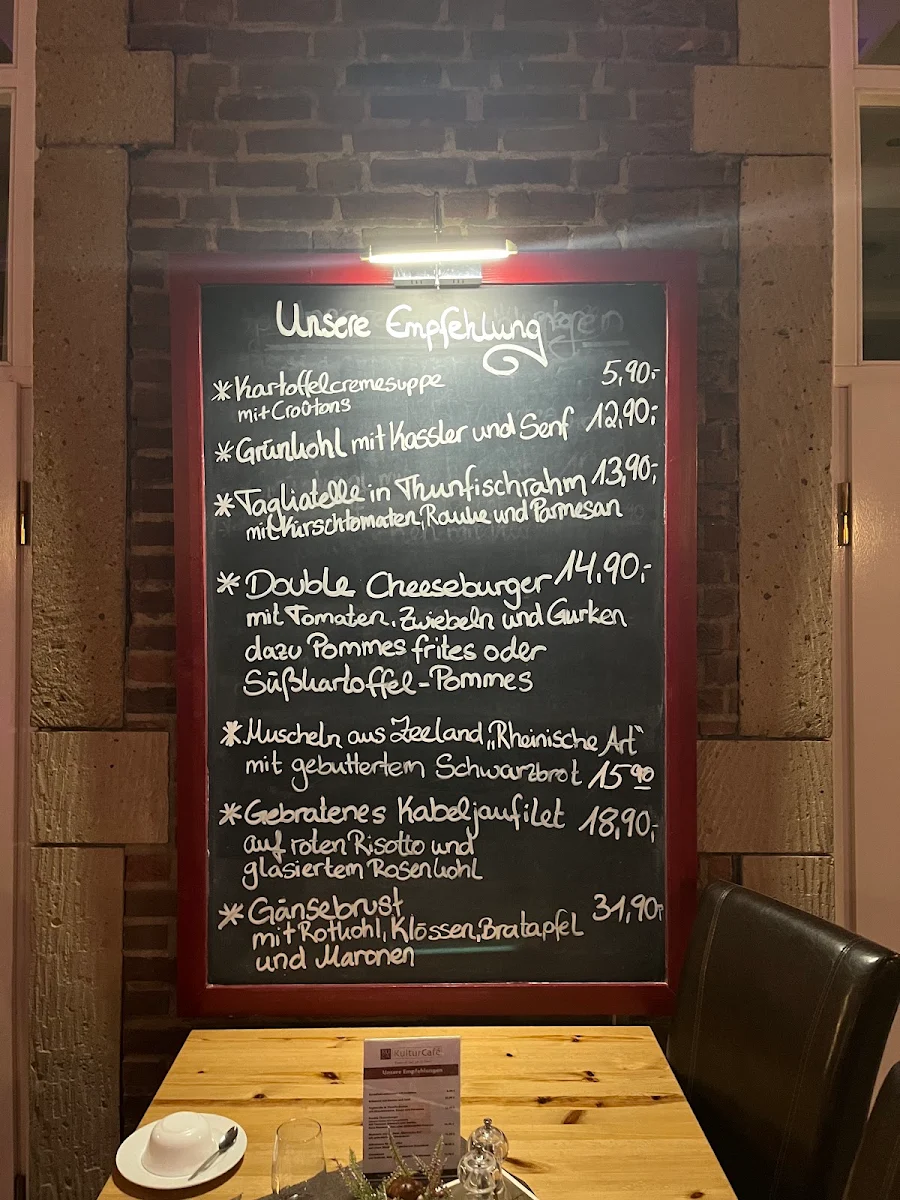 Unsere Empfehlung
*Kartoffelcremesuppe 5,90,-
mit Croûtons
*Grünkohl mit Kassler und Senf 12,90,-
*Tagliatelle in Thunfischrahm 13,90,-
mit Kirschtomaten, Rauke und Parmesan
*Double Cheeseburger 14,90,-
mit Tomaten, Zwiebeln und Gurken
dazu Pommes frites oder
Süßkartoffel-Pommes
*Muscheln aus Zeeland „Rheinische Art“
mit gebuttertem Schwarzbrot 15 90
*Gebratenes Kabeljaufilet 18,90,-
auf roten Risotto und
glasiertem Rosenkohl
*Gänsebrust 31,90,-
mit Rotkohl, Klössen, Bratapfel
und Maronen
KulturCafé
Unsere Empfehlungen